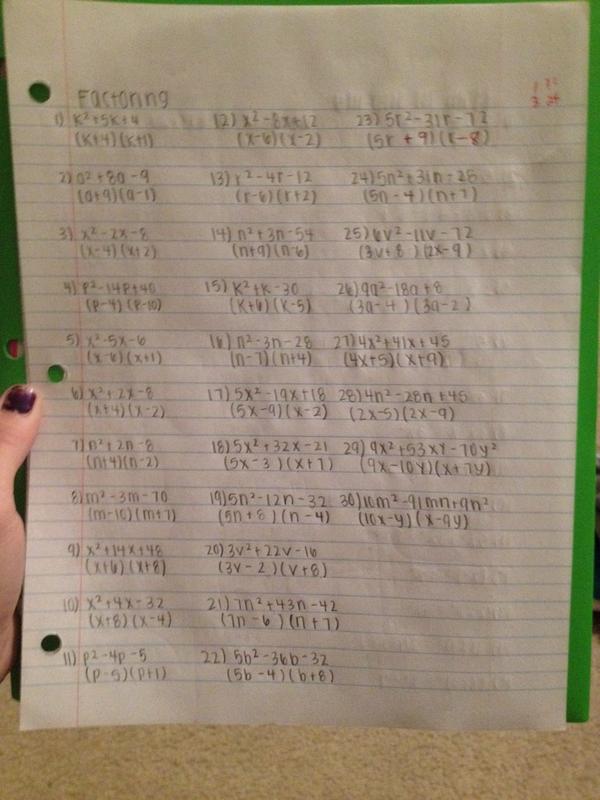 Factoring
1) k²+5k+4
(k+4)(k+1)
2) a²+8a-9
(a+9)(a-1)
3) x²-2x-8
(x-4)(x+2)
4) p²-14p+40
(p-4)(p-10)
5) x²-5x-6
(x-6)(x+1)
6) x²+2x-8
(x+4)(x-2)
7) n²+2n-8
(n+4)(n-2)
8) m²-3m-70
(m-10)(m+7)
9) x²+14x+48
(x+6)(x+8)
10) x²+4x-32
(x+8)(x-4)
11) p²-4p-5
(p-5)(p+1)
12) x²-8x+12
(x-6)(x-2)
13) r²-4r-12
(r-6)(r+2)
14) n²+3n-54
(n+9)(n-6)
15) k²+k-30
(k+6)(k-5)
16) n²-3n-28
(n-7)(n+4)
17) 5x²-19x+18
(5x-9)(x-2)
18) 5x²+32x-21
(5x-3)(x+7)
19) 5n²-12n-32
(5n+8)(n-4)
20) 3v²+22v-16
(3v-2)(v+8)
21) 7n²+43n-42
(7n-6)(n+7)
22) 5b²-36b-32
(5b-4)(b+8)
23) 5r²-31r-72
(5r+9)(r-8)
24) 5n²+31n-28
(5n-4)(n+7)
25) 6v²-11v-72
(3v+8)(2x-9)
26) 9a²-18a+8
(3a-4)(3a-2)
27) 4x²+41x+45
(4x+5)(x+9)
28) 4n²-28n+45
(2x-5)(2x-9)
29) 9x²+53xy-70y²
(9x-10y)(x+7y)
30) 10m²-91mn+9n²
(10x-y)(x-9y)